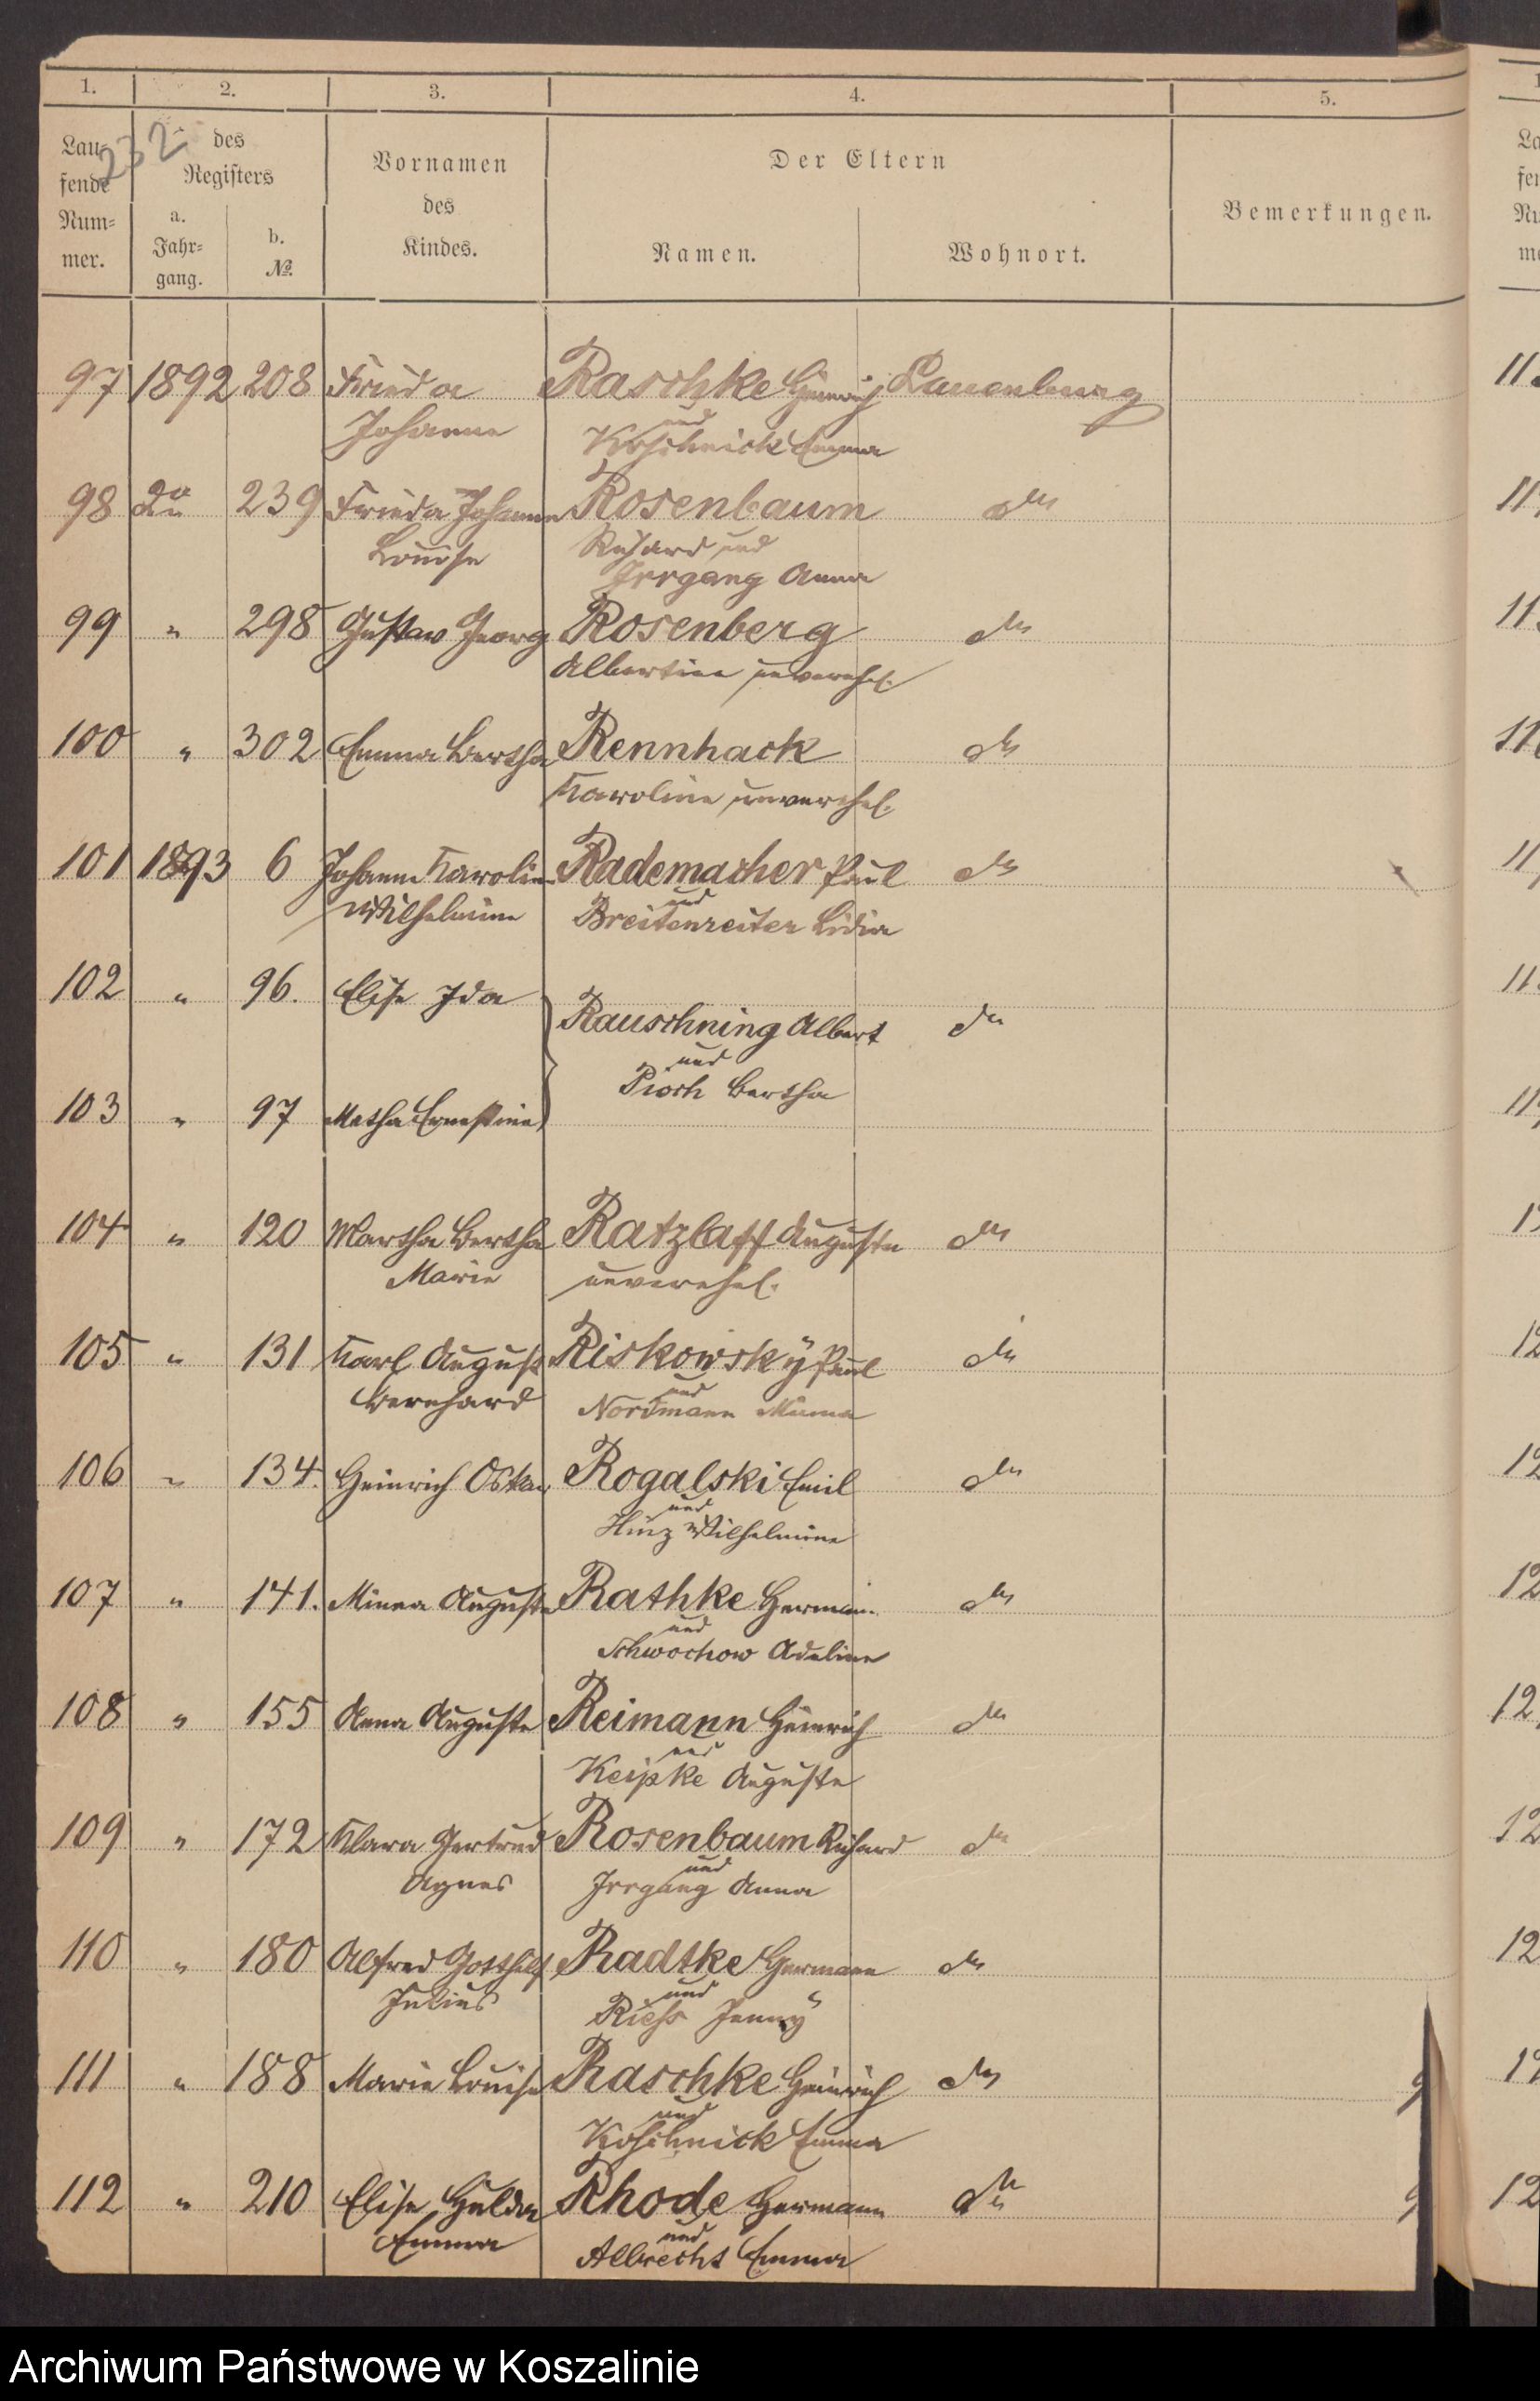 1. 2. 3. 4. 5.
232
Lau=
fende
Num=
mer.
des
Registers
a.
Jahr=
gang.
b.
№.
Vornamen
des
Kindes.
Der Eltern
Namen.
Wohnort.
Bemerkungen.
97 1892 208 Frieda Raschke Heinrich Lauenburg
und
Johanna Koschnick Emma
98 239 Frieda Johanna Rosenbaum do
Louise Richard und
Irrgang Anna
99 " 298 Gustav Georg Rosenberg do
Albertine unverehel.
100 " 302 Emma Bertha Rennhack do
Karoline unverehel.
101 1893 6 Johanna Karoline Rademacher Paul do
und
Wilhelmine Breitenreiter Lidia
102 " 96. Elise Ida
Rauschning Albert do
und
Pioch Bertha
103 " 97 Metha Ernestine
104 " 120 Martha Bertha Ratzlaff Auguste do
Marie unverehel.
105 " 131 Karl August Riskowsky Paul do
und
Bernhard Nordmann
106 " 134. Heinrich Oskar Rogalski Emil do
und
Hinz Wilhelmine
107 " 141. Minna Auguste Rathke Hermann do
und
Schwochow Adeline
108 " 155 Anna Auguste Reimann Heinrich do
und
Keipke Auguste
109 " 172 Klara Gertrud Rosenbaum Richard do
und
Agnes Irrgang Anna
110 " 180 Alfred Gotthelf Radtke Hermann do
und
Julius Jenny
111 " 188 Marie Louise Raschke Heinrich do
und
Koschnick Emma
112 " 210 Elise Hulda Rhode Hermann do
und
Emma Albrecht Emma
Archiwum Państwowe w Koszalinie